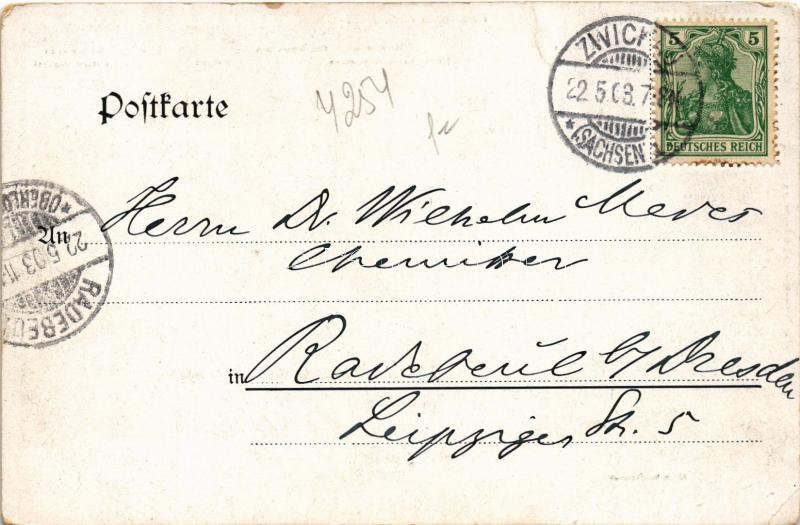 Postkarte
4254
ZWICK
22.5.03.7-8N
*(SACHSEN)
5 5
DEUTSCHES REICH
*OBERLÖ
22.5.03.11-
RADEBEU
An Herrn Dr. Wilhelm Meves
Chemiker
in Radebeul b/Dresden
Leipziger Str. 5